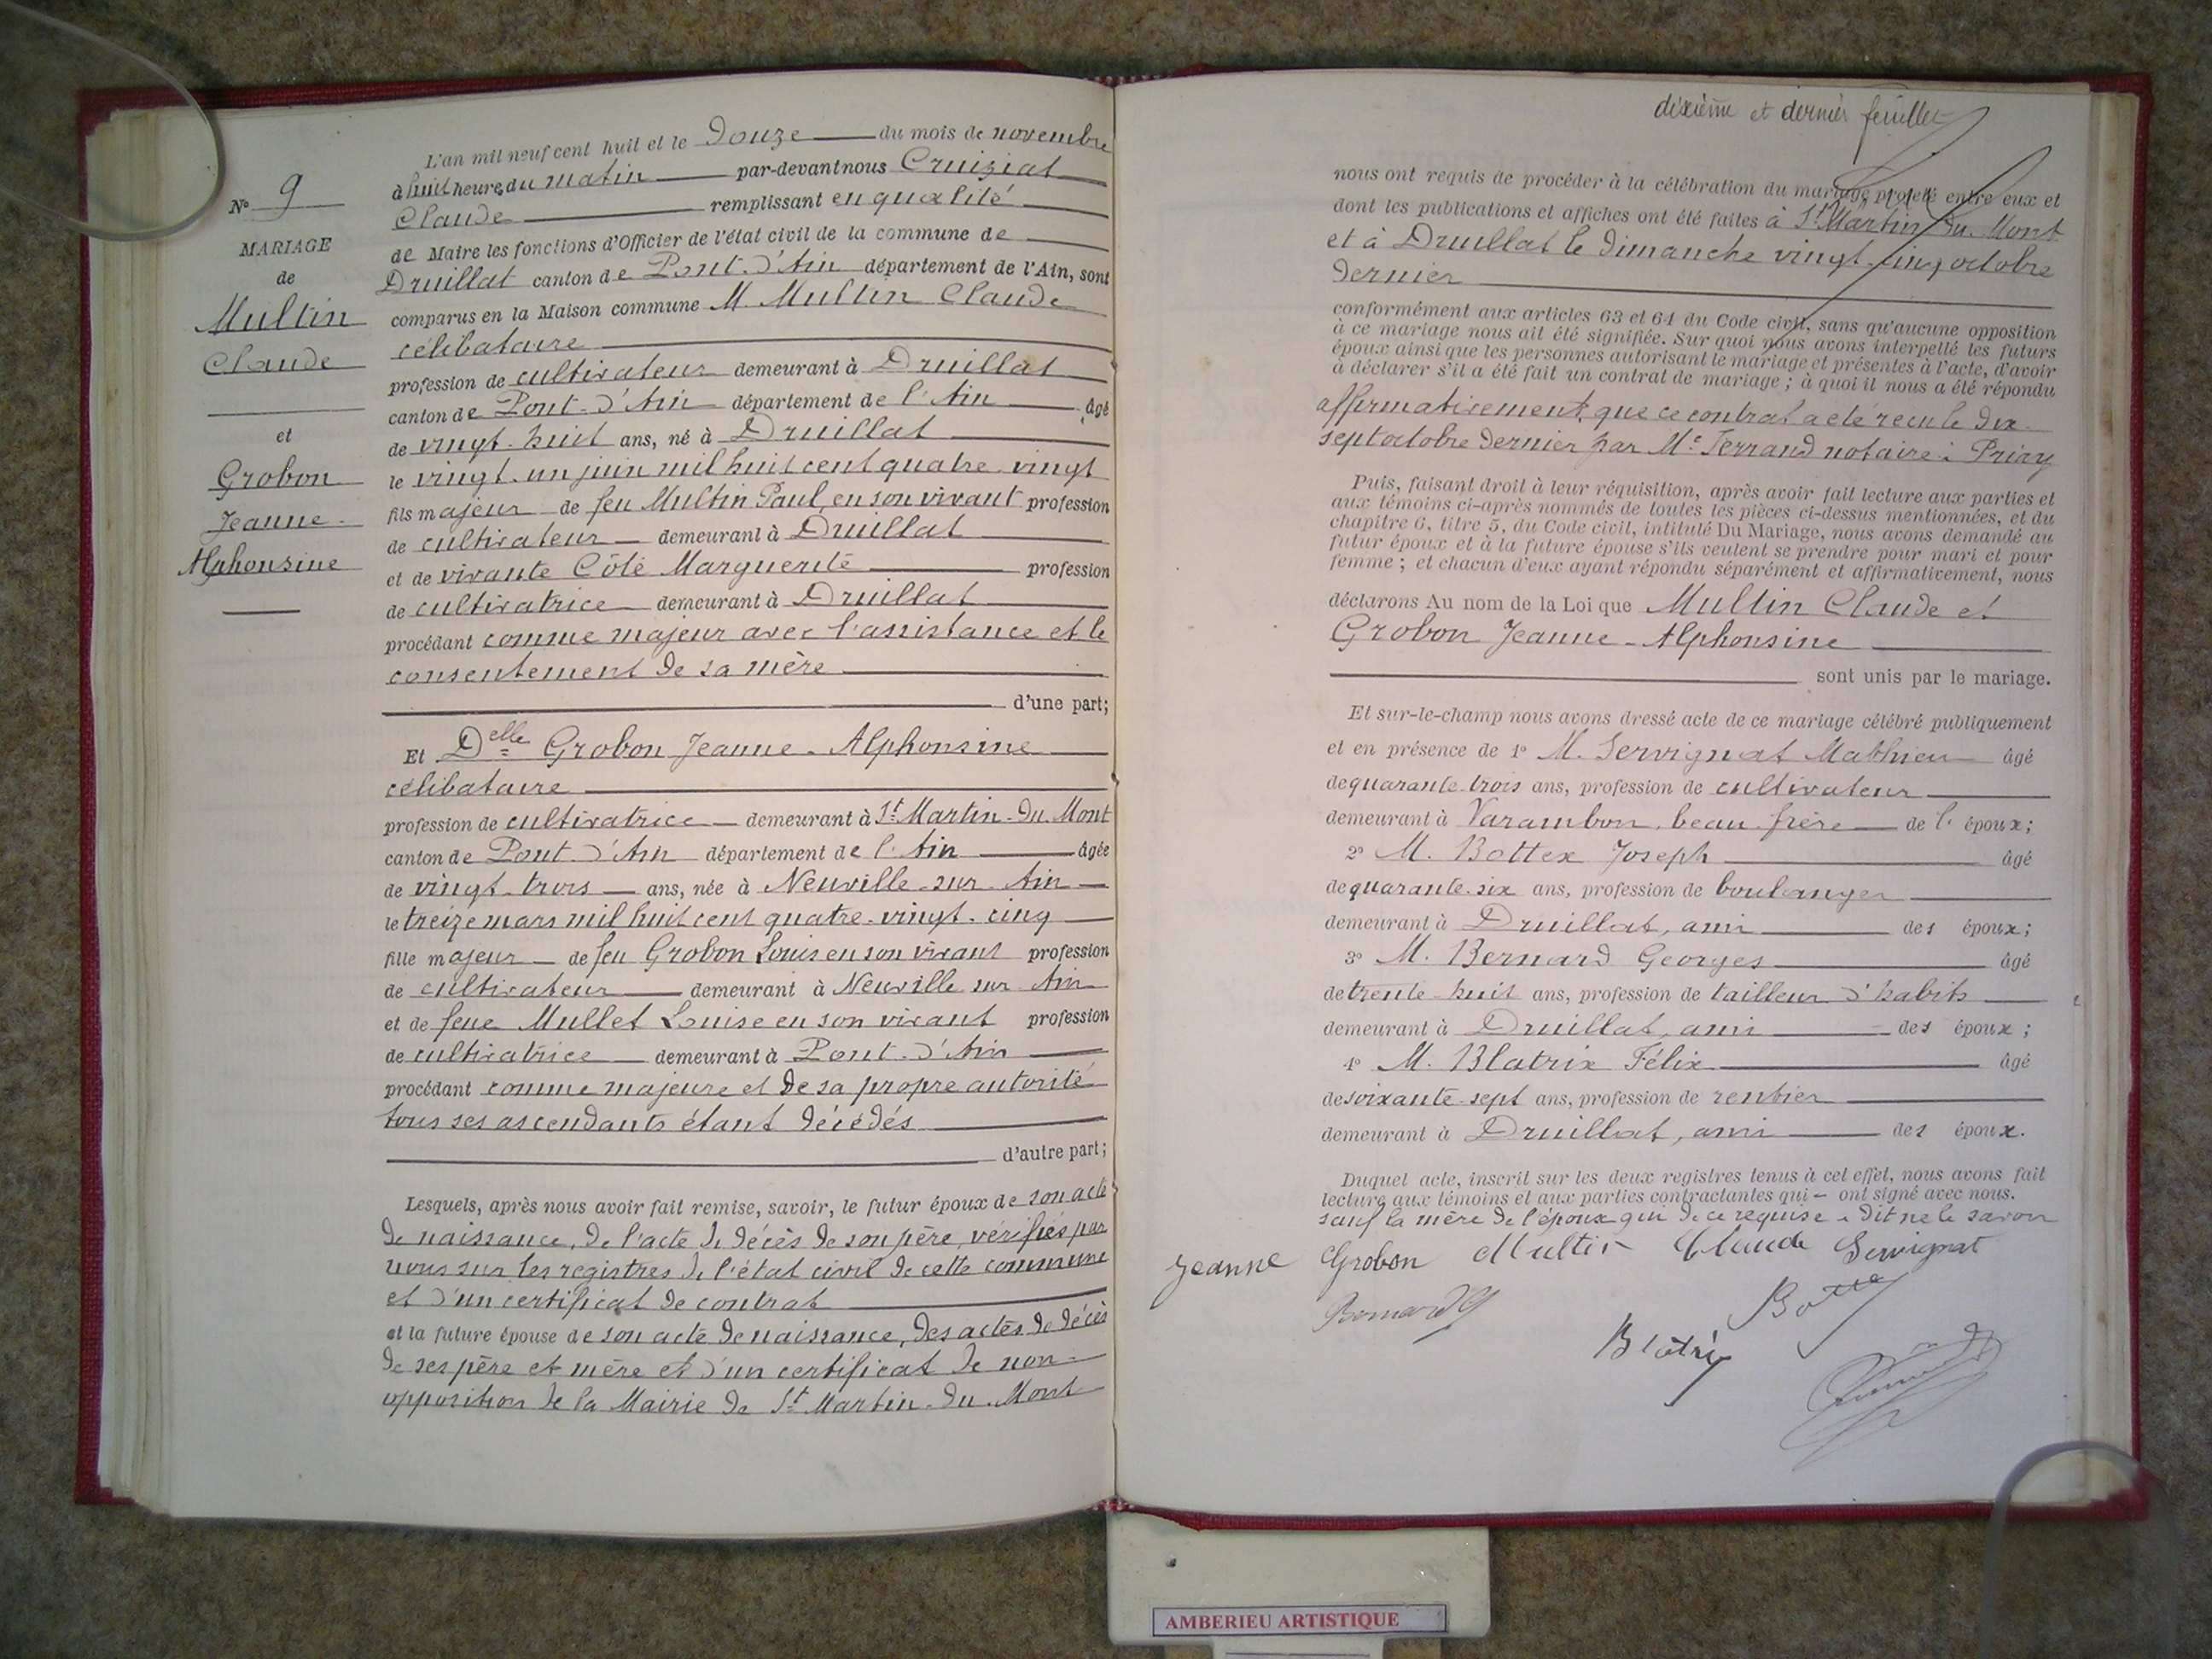 N° 9
MARIAGE
de
Multin
Claude
et
Grobon
Jeanne-
Alphonsine
L'an mil neuf cent huit et le Douze du mois de novembre
à huit heures du matin par-devant nous Cruiziat
Claude remplissant en qualité
de Maire les fonctions d'Officier de l'état civil de la commune de
Druillat canton de Pont-d'Ain département de l'Ain, sont
comparus en la Maison commune M. Multin Claude
célibataire
profession de cultivateur demeurant à Druillat
canton de Pont-d'Ain département de l'Ain âgé
de vingt-huit ans, né à Druillat
le vingt-un juin mil huit cent quatre-vingt
fils majeur de feu Multin Paul, en son vivant profession
de cultivateur demeurant à Druillat
et de vivante Côte Marguerite profession
de cultivatrice demeurant à Druillat
procédant comme majeur avec l'assistance et le
consentement de sa mère
d'une part;
Et Delle Grobon Jeanne-Alphonsine
célibataire
profession de cultivatrice demeurant à St Martin-du-Mont
canton de Pont-d'Ain département de l'Ain âgée
de vingt-trois ans, née à Neuville-sur-Ain
le treize mars mil huit cent quatre-vingt-cinq
fille majeur de feu Grobon Louis en son vivant profession
de cultivateur demeurant à Neuville sur Ain
et de feue Mullet Louise en son vivant profession
de cultivatrice demeurant à Pont-d'Ain
procédant comme majeure et de sa propre autorité
tous ses ascendants étant décédés
d'autre part;
Lesquels, après nous avoir fait remise, savoir, le futur époux de son acte
de naissance, de l'acte de décès de son père, vérifiés par
nous sur les registres de l'état civil de cette commune
et d'un certificat de contrat
et la future épouse de son acte de naissance, des actes de décès
de ses père et mère et d'un certificat de non-
opposition de la Mairie de St Martin-du-Mont
dixième et dernier feuillet
nous ont requis de procéder à la célébration du mariage projeté entre eux et
dont les publications et affiches ont été faites à St Martin-du-Mont
et à Druillat le dimanche vingt-cinq octobre
dernier
conformément aux articles 63 et 64 du Code civil, sans qu'aucune opposition
à ce mariage nous ait été signifiée. Sur quoi nous avons interpellé les futurs
époux ainsi que les personnes autorisant le mariage et présentes à l'acte, d'avoir
à déclarer s'il a été fait un contrat de mariage; à quoi il nous a été répondu
affirmativement, que ce contrat a été reçu le dix-
sept octobre dernier par Me Ferrand notaire à Priay
Puis, faisant droit à leur réquisition, après avoir fait lecture aux parties et
aux témoins ci-après nommés de toutes les pièces ci-dessus mentionnées, et du
chapitre 6, titre 5, du Code civil, intitulé Du Mariage, nous avons demandé au
futur époux et à la future épouse s'ils veulent se prendre pour mari et pour
femme; et chacun d'eux ayant répondu séparément et affirmativement, nous
déclarons Au nom de la Loi que Multin Claude et
Grobon Jeanne-Alphonsine
sont unis par le mariage.
Et sur-le-champ nous avons dressé acte de ce mariage célébré publiquement
et en présence de 1° M. Servignat Mathieu âgé
de quarante-trois ans, profession de cultivateur
demeurant à Varambon, beau-frère de l' époux;
2° M. Bottex Joseph âgé
de quarante-six ans, profession de boulanger
demeurant à Druillat, ami des époux;
3° M. Bernard Georges âgé
de trente-huit ans, profession de tailleur d'habits
demeurant à Druillat, ami des époux;
4° M. Blatrix Félix âgé
de soixante-sept ans, profession de rentier
demeurant à Druillat, ami des époux.
Duquel acte, inscrit sur les deux registres tenus à cet effet, nous avons fait
lecture aux témoins et aux parties contractantes qui ont signé avec nous.
sauf la mère de l'époux qui de ce requise a dit ne le savoir
Jeanne Grobon Multin Claude Servignat
Bernard G
AMBERIEU ARTISTIQUE